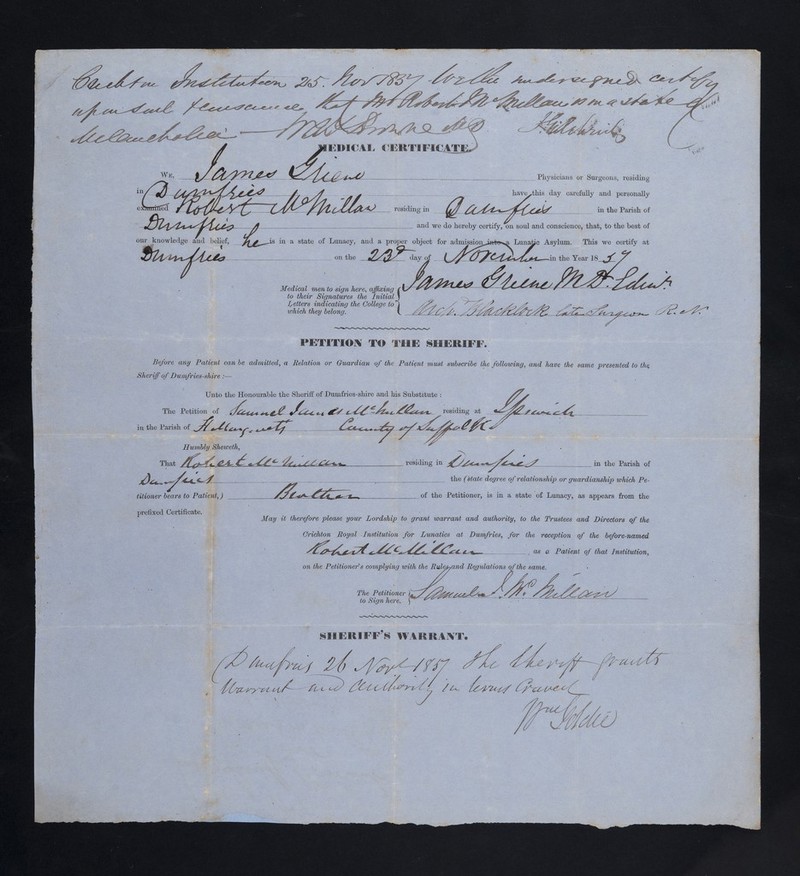 Crichton Institution 25. Novr 1857 We the undersigned certify
upon soul & conscience, that Mr Robert McMillan is in a state of
Melancholia — W A F Browne MD J Gilchrist
MEDICAL CERTIFICATE.
We, James Grieve Physicians or Surgeons, residing
in Dumfries have this day carefully and personally
examined Robert McMillan residing in Dumfries in the Parish of
Dumfries and we do hereby certify, on soul and conscience, that, to the best of
our knowledge and belief, he is in a state of Lunacy, and a proper object for admission into a Lunatic Asylum. This we certify at
Dumfries on the 23d day of November in the Year 1857
Medical men to sign here, affixing
to their Signatures the Initial
Letters indicating the College to
which they belong.
James Grieve M D. Edinr
Arch. Blacklock late Surgeon R. N.
PETITION TO THE SHERIFF.
Before any Patient can be admitted, a Relation or Guardian of the Patient must subscribe the following, and have the same presented to the
Sheriff of Dumfries-shire:—
Unto the Honourable the Sheriff of Dumfries-shire and his Substitute:
The Petition of Samuel James McMillan residing at Ipswich
in the Parish of St Margarets County of Suffolk
Humbly Sheweth,
That Robert McMillan residing in Dumfries in the Parish of
Dumfries the (state degree of relationship or guardianship which Pe-
titioner bears to Patient,) Brother of the Petitioner, is in a state of Lunacy, as appears from the
prefixed Certificate.
May it therefore please your Lordship to grant warrant and authority, to the Trustees and Directors of the
Crichton Royal Institution for Lunatics at Dumfries, for the reception of the before-named
Robert McMillan as a Patient of that Institution,
on the Petitioner's complying with the Rules and Regulations of the same.
The Petitioner
to Sign here,
Samuel J. McMillan
SHERIFF'S WARRANT.
Dumfries 26 Novr 1857 The Sheriff grants
Warrant and authority in terms Craved
Wm Goldie